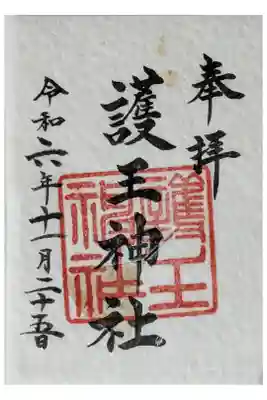 奉拝
護王神社
護王
神社
令和六年十一月二十五日